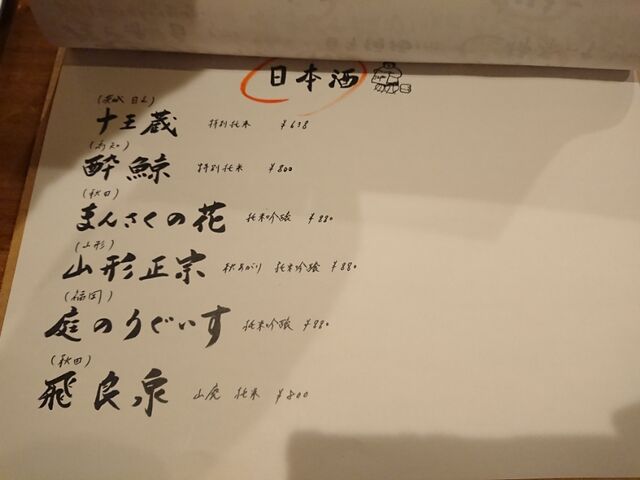 日本酒
(茨城 日立)
十王蔵 特別純米 ¥638
(高知)
酔鯨 特別純米 ¥800
(秋田)
まんさくの花 純米吟醸 ¥880
(山形)
山形正宗 秋あがり 純米吟醸 ¥880
(福岡)
庭のうぐいす 純米吟醸 ¥880
(秋田)
飛良泉 山廃 純米 ¥800